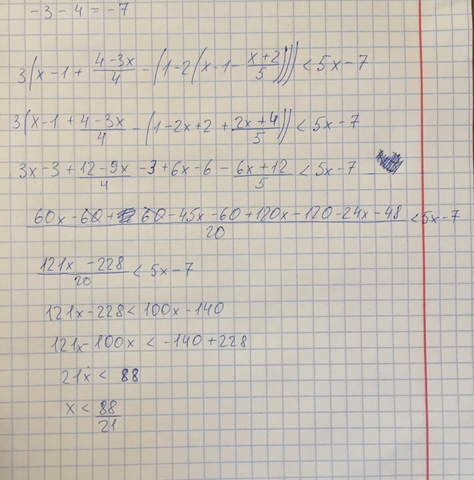 -3-4=-7
3(x-1+\frac{4-3x}{4}-(1-2(x-1-\frac{x+2}{5})))<5x-7
3(x-1+\frac{4-3x}{4}-(1-2x+2+\frac{2x+4}{5}))<5x-7
3x-3+\frac{12-9x}{4}-3+6x-6-\frac{6x+12}{5}<5x-7
\frac{60x-60+60-45x-60+120x-120-24x-48}{20}<5x-7
\frac{121x-228}{20}<5x-7
121x-228<100x-140
121x-100x<-140+228
21x<88
x<\frac{88}{21}